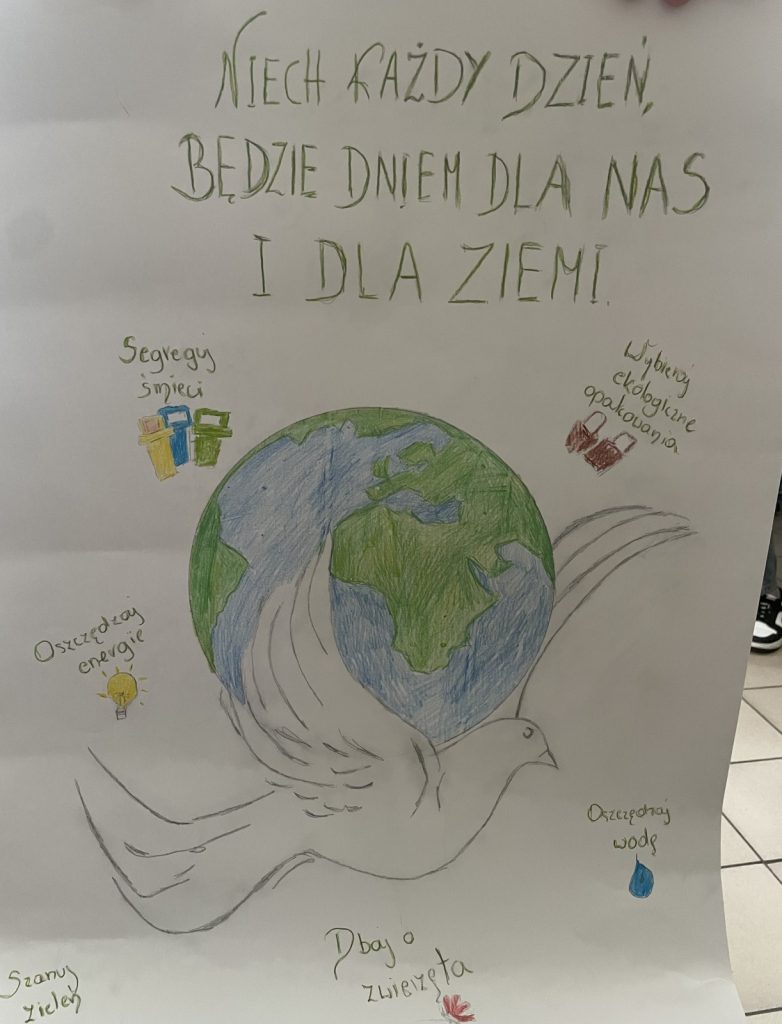 NIECH KAŻDY DZIEŃ,
BĘDZIE DNIEM DLA NAS
I DLA ZIEMI.
Segreguj
śmieci
Wybieraj
ekologiczne
opakowania
Oszczędzaj
energie
Oszczędzaj
wodę
Dbaj o
zwierzęta
Szanuj
zieleń